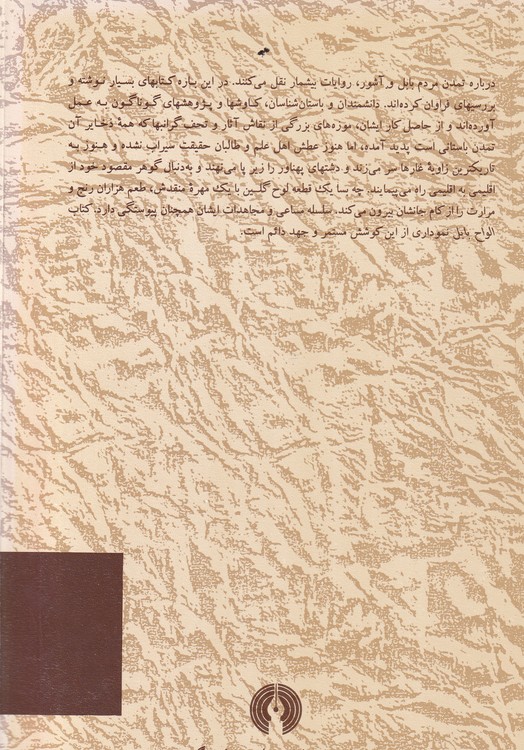 درباره تمدن مردم بابل و آشور، روایات بیشمار نقل می‌کنند. در این باره کتابهای بسیار نوشته و
بررسیهای فراوان کرده‌اند. دانشمندان و باستان‌شناسان، کاوشها و پژوهشهای گوناگون به عمل
آورده‌اند و از حاصل کار ایشان، موزه‌های بزرگی از نفایس آثار و تحف گرانبها که همهٔ ذخایر آن
تمدن باستانی است پدید آمده، اما هنوز عطش اهل علم و طالبان حقیقت سیراب نشده و هنوز به
تاریکترین زاویهٔ غارها سر می‌زنند و دشتهای پهناور را زیر پا می‌نهند و به‌دنبال گوهر مقصود خود از
اقلیمی به اقلیمی راه می‌پیمایند. چه بسا یک قطعه لوح گلین با یک مهرهٔ منقش، طعم هزاران رنج و
مرارت را از کام جانشان بیرون می‌کند. سلسله مساعی و مجاهدات ایشان همچنان پیوستگی دارد. کتاب
الواح بابل نموداری از این کوشش مستمر و جهد دائم است.